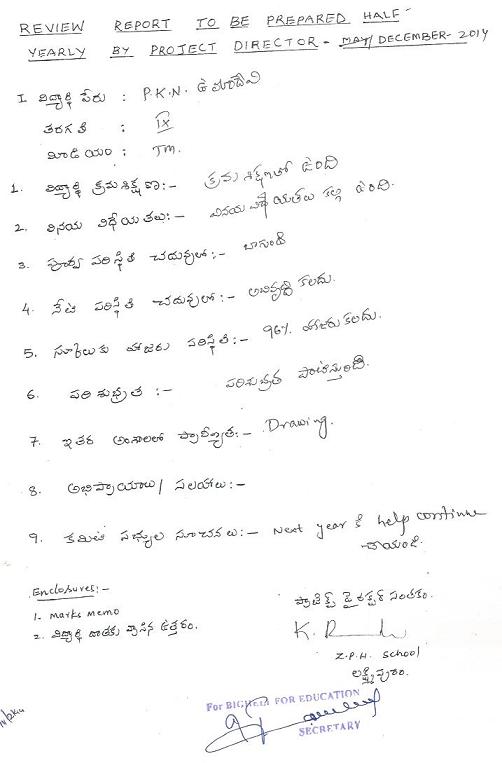 REVIEW REPORT TO BE PREPARED HALF-
YEARLY BY PROJECT DIRECTOR - MAY/DECEMBER-2014
I. విద్యార్థి పేరు : P.K.N. ఉమాదేవి
తరగతి : IX
మీడియం : TM.
1. విద్యార్థి క్రమశిక్షణ:- క్రమశిక్షణతో ఉంది
2. వినయ విధేయతలు:- వినయ విధేయతలు కల్గి ఉంది.
3. పూర్వ పరిస్థితి చదువులో:- బాగుంది
4. నేటి పరిస్థితి చదువులో:- అభివృద్ధి కలదు.
5. స్కూలుకు హాజరు పరిస్థితి:- 96% హాజరు కలదు.
6. పరిశుభ్రత :- పరిశుభ్రత పాటిస్తుంది.
7. ఇతర అంశాలలో ప్రావీణ్యత:- Drawing.
8. అభిప్రాయాలు/ సలహాలు:-
9. కమిటి సభ్యుల సూచనలు:- Next year కి help continue
చేయండి.
Enclosures:-
1- marks memo
2. విద్యార్థి దాతకు వ్రాసిన ఉత్తరం.
ప్రాజెక్ట్ డైరెక్టర్ సంతకం.
Z.P.H. School
లక్ష్మీపురం.
For BIGHELP FOR EDUCATION
SECRETARY